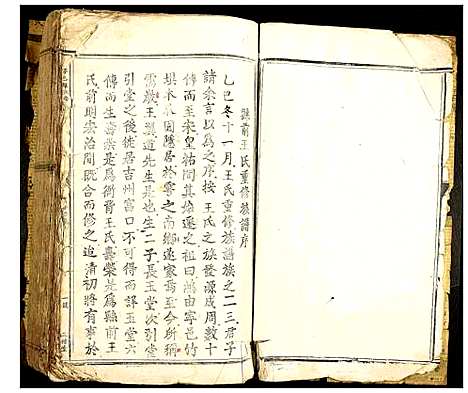 縣前王氏重修族譜序
乙巳冬十一月王氏重修族譜族之二三君子
請余言以為之序按王氏之族發源成周數十
傳而至宋皇祐間其始遷之祖鴻由寧邑竹
木園隱居於寧之南鄉遂家焉至今所稱
王道先生是也生二子長玉堂次引堂
引堂之後徙居吉州富口不可得而譯玉堂六
傳而生壽榮是為衙背王氏壽榮是為縣前王
氏前明宏治間既合而修之迨清初將有事於